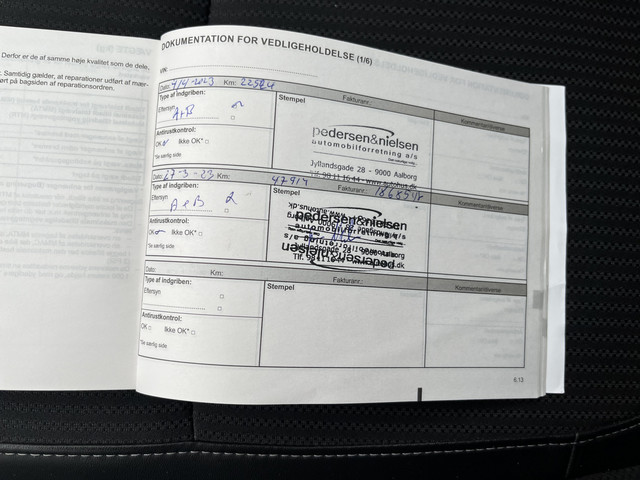 Derfor er de af samme høje kvalitet som de dele,
Samtidig gælder, at reparationer udført af mær-
ørt på bagsiden af reparationsordren.
DOKUMENTATION FOR VEDLIGEHOLDELSE (1/6)
VIN:
Dato: Km:
Type af indgriben: Stempel Fakturanr.: Kommentar/diverse
Eftersyn
A+B
Antirustkontrol:
OK Ikke OK*
*Se særlig side
pedersen&nielsen
automobilforretning a/s
Jyllandsgade 28 - 9000 Aalborg
Tlf. 98 11 16 44 - www.autohus.dk
Dato: 27-3-23 Km: 47914 Fakturanr.:
Type af indgriben: Stempel Kommentar/diverse
Eftersyn
A+B 2
Antirustkontrol:
OK Ikke OK*
*Se særlig side
pedersen&nielsen
automobilforretning a/s
Tlf. 98 11 16 44
Dato: Km: Fakturanr.: Kommentar/diverse
Type af indgriben: Stempel
Eftersyn
Antirustkontrol:
OK Ikke OK*
*Se særlig side
6.13